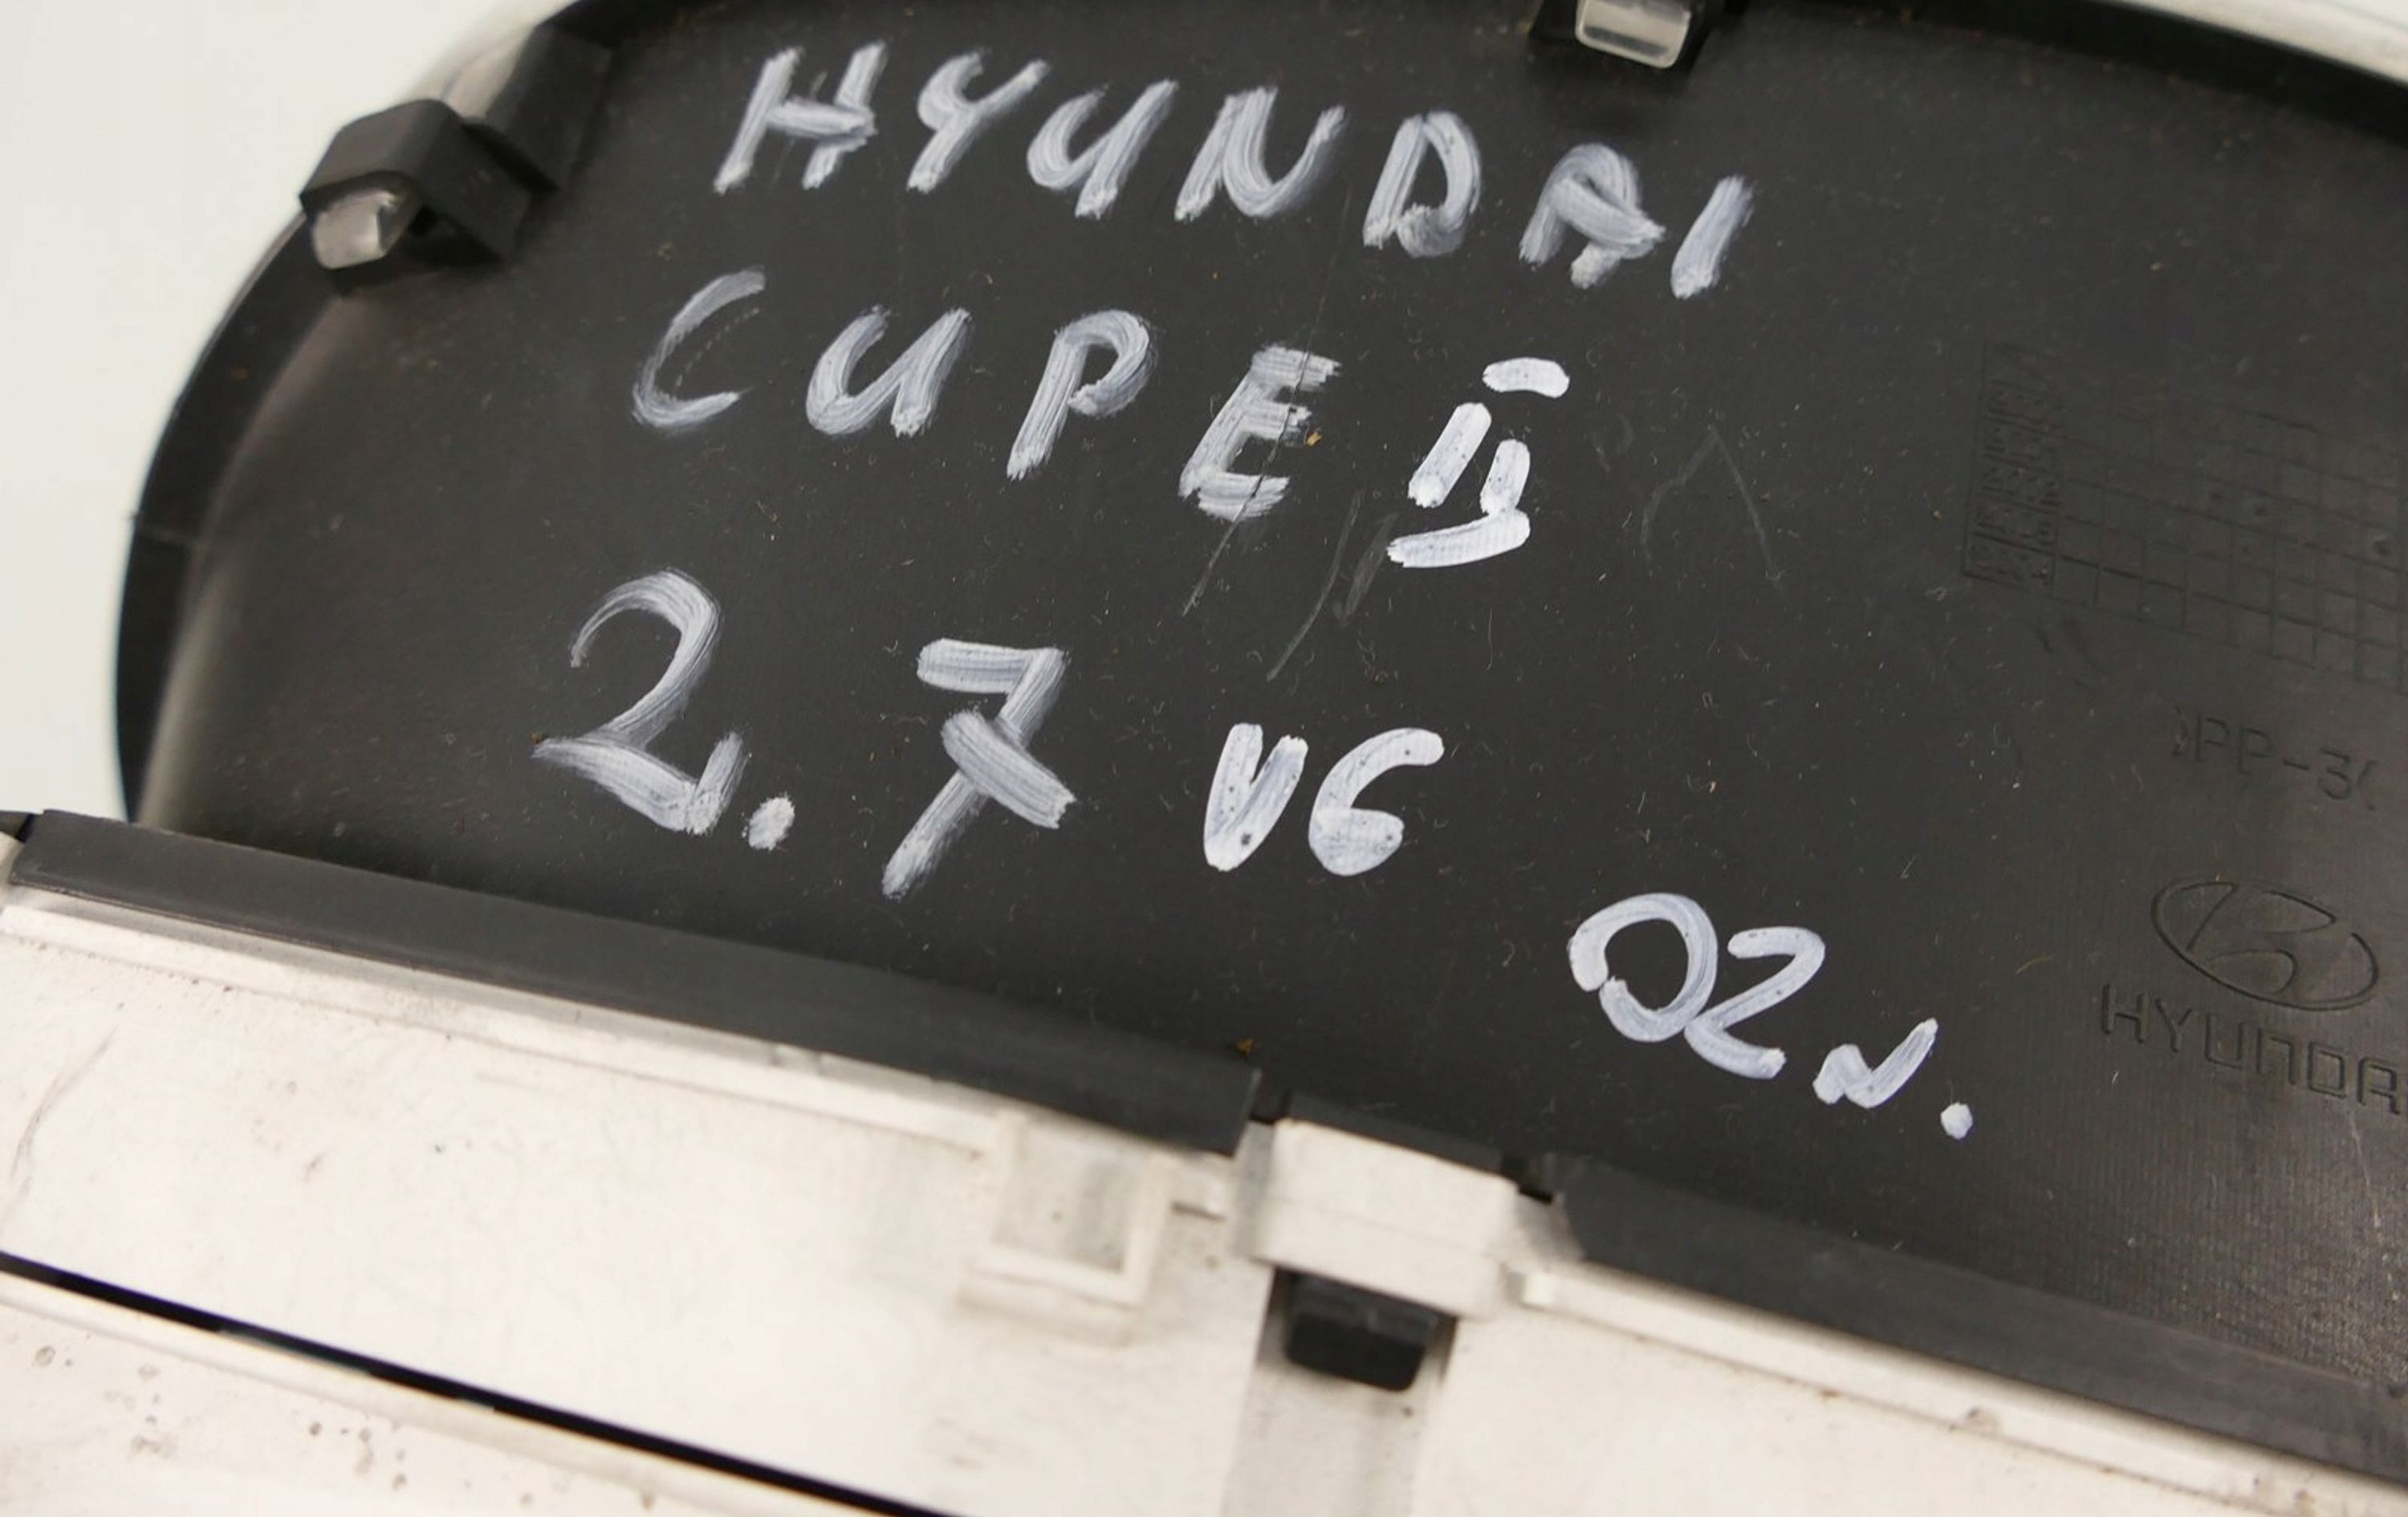 HYUNDAI
CUPE II
2.7 V6
02 r.
HYUNDA